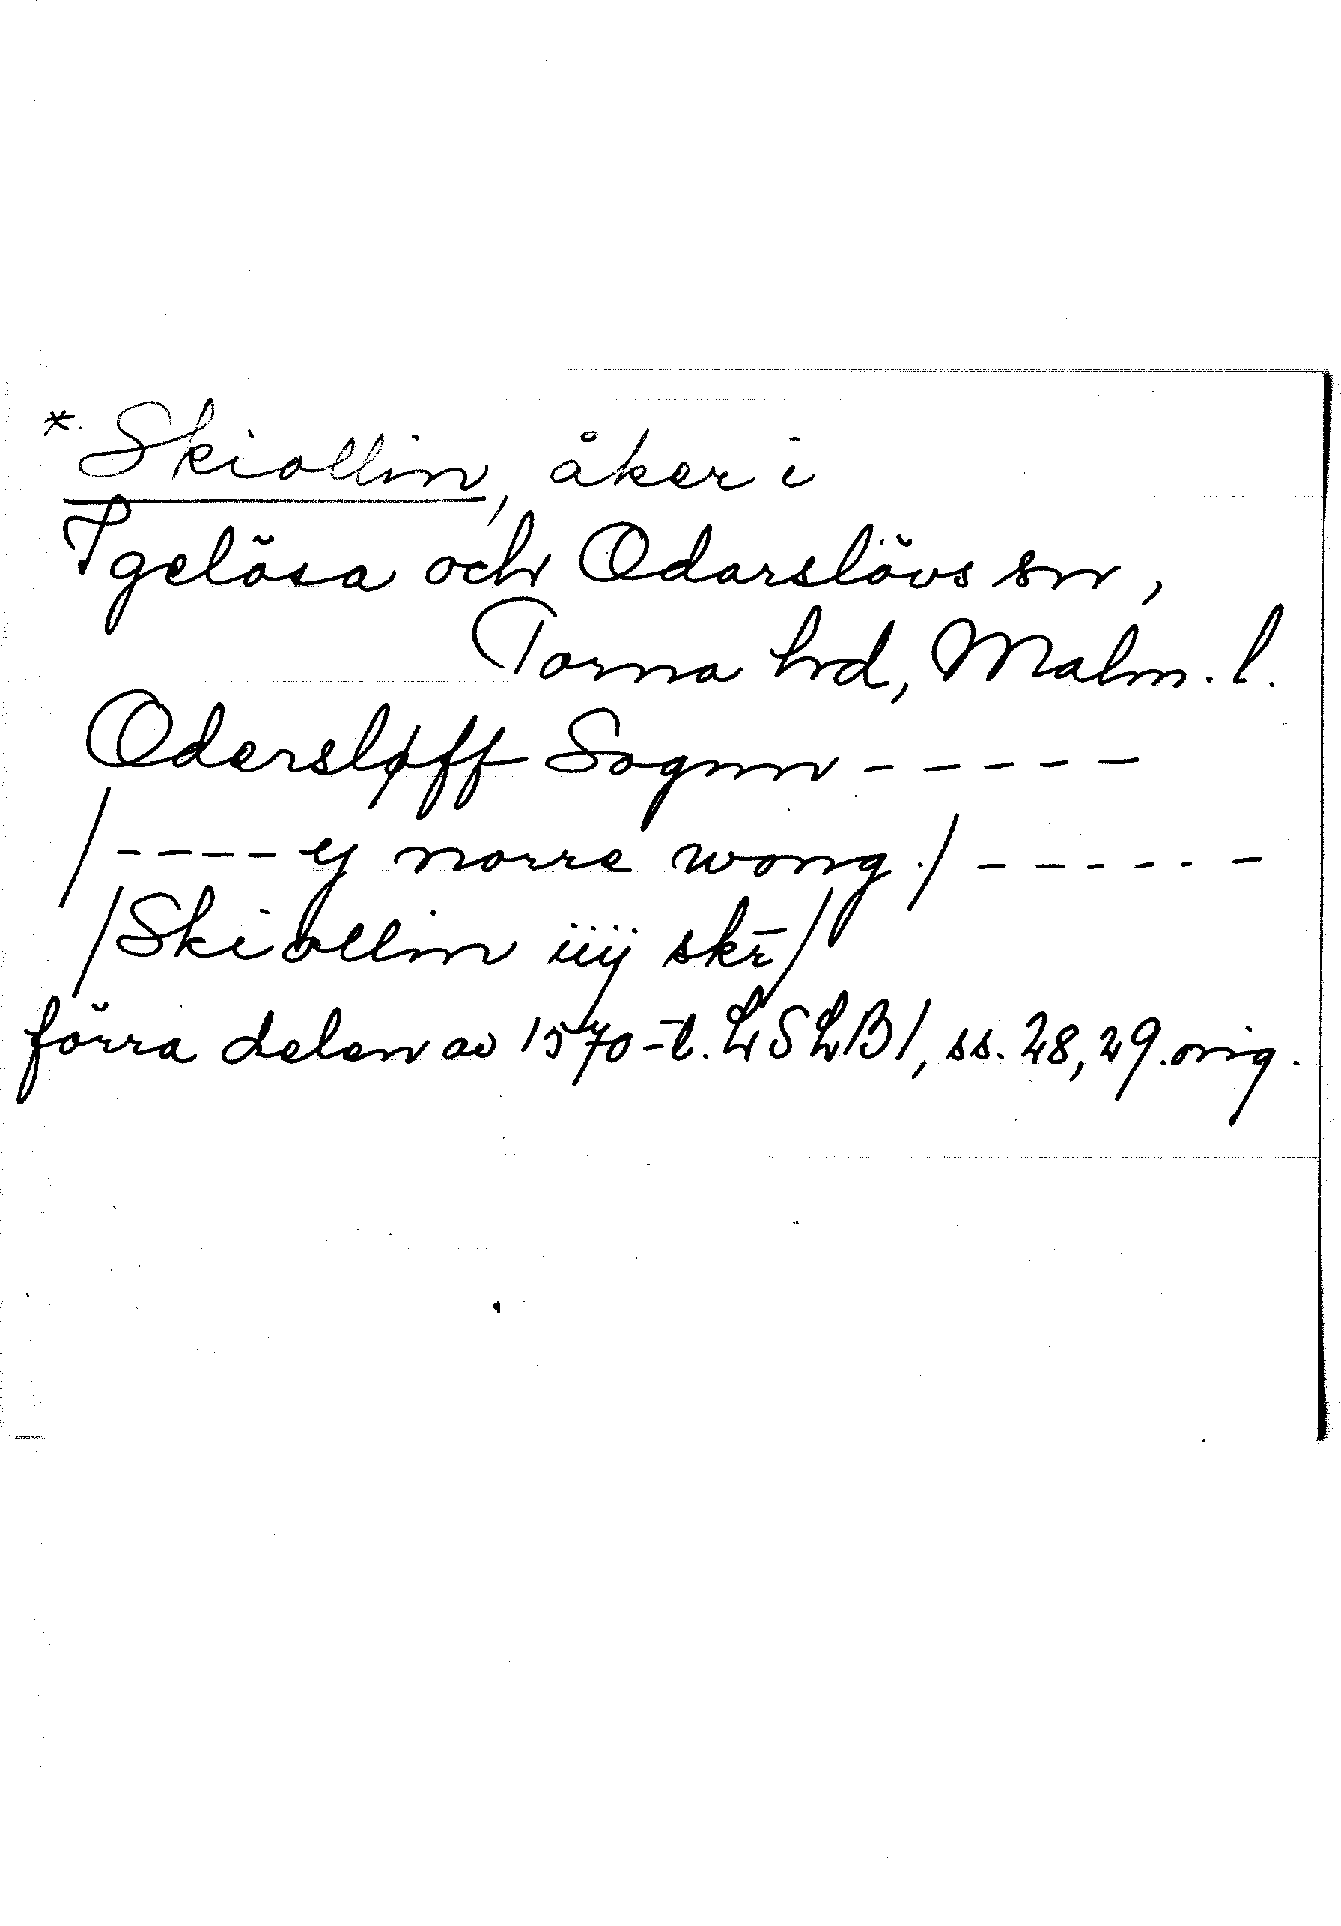 *. Skiollin, åker i
Igelösa och Odarslövs sn,
Torna hd, Malm. l.
Odersløff Sognn - - - - -
/ - - - - ẏ norre wong / - - - - - -
/ Skiollin iiij skr̄ /
förra delen av 1570-t. LSLB 1, ss. 28, 29. orig.